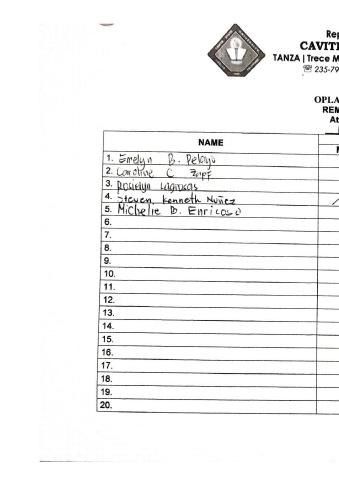 Rep
CAVITE
TANZA | Trece M
☏ 235-79
OPLA
REM
At
NAME
1. Emelyn B. Pelayo
2. Caroline C
3. Roselyn Lagrosas
4. Steven Kenneth Nuñez
5. Michelle D. Enricoso
6.
7.
8.
9.
10.
11.
12.
13.
14.
15.
16.
17.
18.
19.
20.